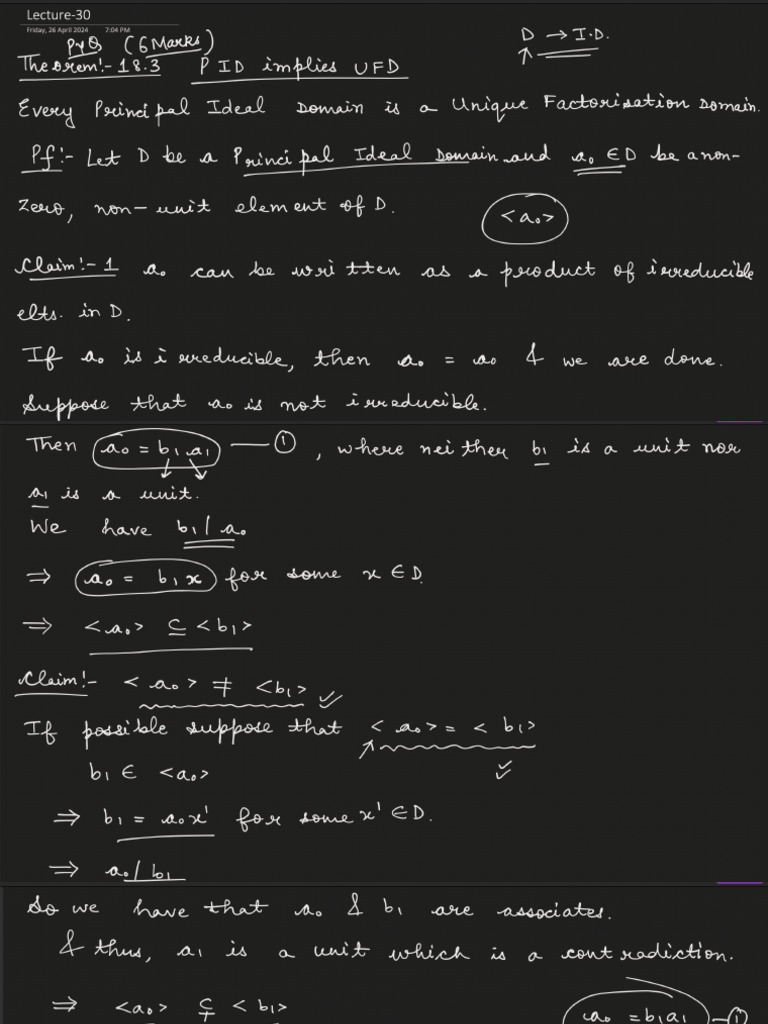 Lecture-30
Friday, 26 April 2024 7:04 PM
PYQ (6 Marks)
D → I.D.
↑
Theorem!- 18.3 PID implies UFD
Every Principal Ideal Domain is a Unique Factorisation Domain.
Pf!- Let D be a Principal Ideal Domain and a₀ ∈ D be a non-
zero, non-unit element of D.
<a₀>
Claim!-1 a₀ can be written as a product of irreducible
elts. in D.
If a₀ is irreducible, then a₀ = a₀ & we are done.
Suppose that a₀ is not irreducible.
Then a₀ = b₁ a₁ — ① , where neither b₁ is a unit nor
a₁ is a unit.
We have b₁ / a₀
⇒ a₀ = b₁ x for some x ∈ D.
⇒ <a₀> ⊆ <b₁>
Claim!- <a₀> ≠ <b₁> ✓
If possible suppose that <a₀> = <b₁>
b₁ ∈ <a₀> ✓
⇒ b₁ = a₀x' for some x' ∈ D.
⇒ a₀ / b₁
So we have that a₀ & b₁ are associates.
& thus, a₁ is a unit which is a contradiction.
⇒ <a₀> ⊊ <b₁>
a₀ = b₁a₁ — ①